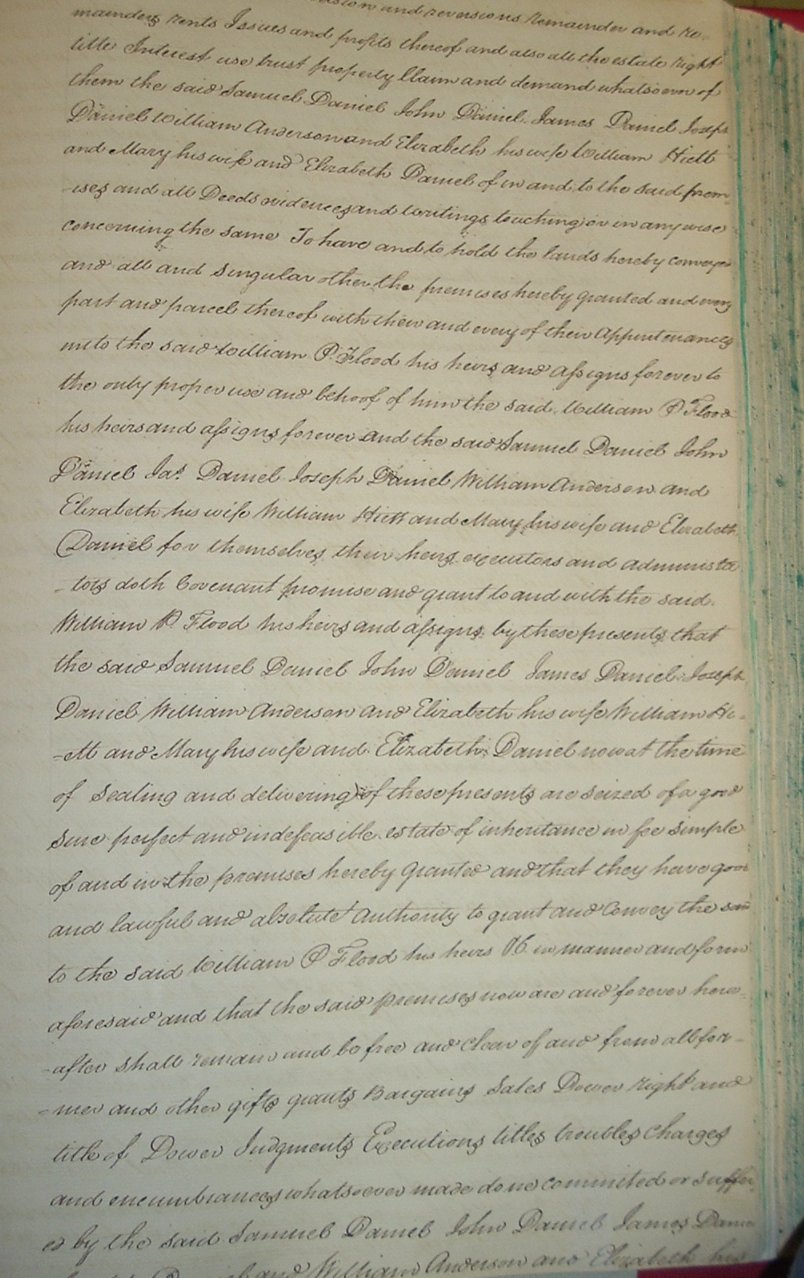 and reversions remainder and re-
mainders rents Issues and profits thereof and also all the estate right
title Interest use trust property Claim and demand whatsoever of
them the said Samuel Daniel John Daniel James Daniel Joseph
Daniel William Anderson and Elizabeth his wife William Hiett
and Mary his wife and Elizabeth Daniel of in and to the said prem-
-ises and all Deeds evidences and writings touching or in any wise
concerning the same To have and to hold the lands hereby conveyed
and all and singular other the premises hereby granted and every
part and parcel thereof with their and every of their Appurtenances
unto the said William P. Flood his heirs and assigns forever to
the only proper use and behoof of him the said William P Flood
his heirs and assigns forever and the said Samuel Daniel John
Daniel Jas. Daniel Joseph Daniel William Anderson and
Elizabeth his wife William Hiett and Mary his wife and Elizabeth
Daniel for themselves their heirs executors and administra
-tors doth Covenant promise and grant to and with the said
William P. Flood his heirs and assigns by these presents that
the said Samuel Daniel John Daniel James Daniel Joseph
Daniel William Anderson and Elizabeth his wife William Hi-
-ett and Mary his wife and Elizabeth Daniel now at the time
of Sealing and delivering of these presents are seized of a good
Sure perfect and indefeasible estate of inheritance in fee simple
of and in the premises hereby Granted and that they have good
and lawful and absolute authority to grant and Convey the same
to the said William P Flood his heirs &c in manner and form
aforesaid and that the said premises now are and forever here-
-after shall remain and be free and clear off and from all for-
-mer and other gifts grants Bargains Sales Dower right and
title of Dower Judgments Executions titles troubles charges
and encumbrances whatsoever made done committed or suffer
ed by the said Samuel Daniel John Daniel James Daniel
and William Anderson and Elizabeth his